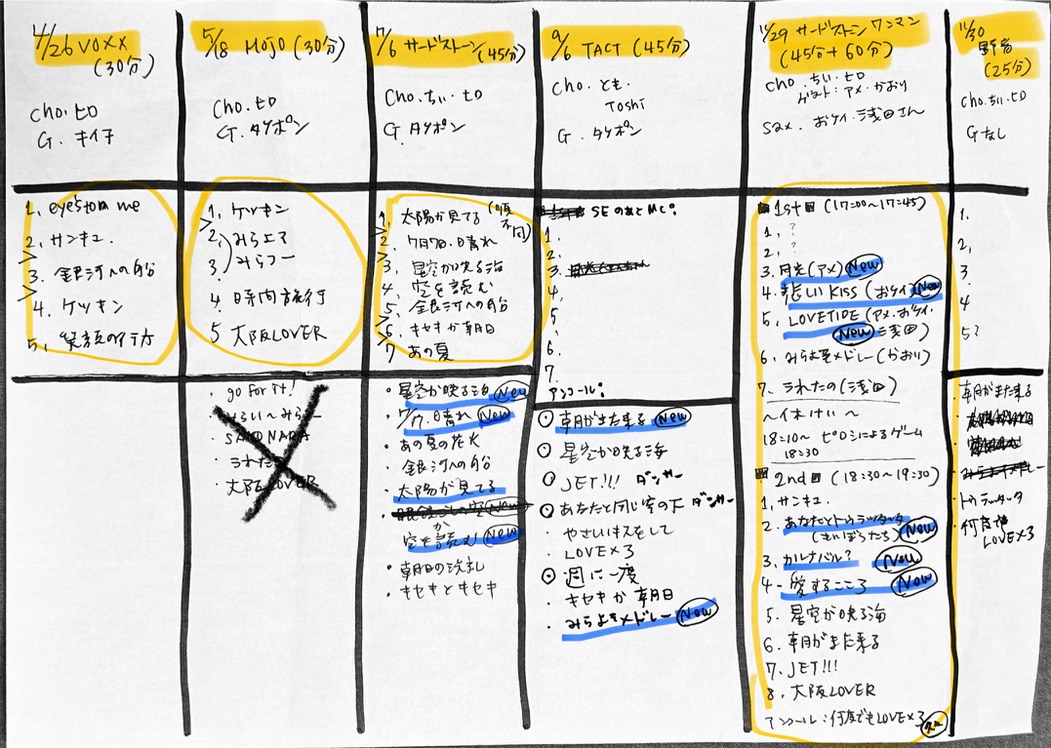 4/26 VOXX
(30分)
Cho.ヒロ
G. キイチ
1. eyes to me
2. サンキュ.
3. 銀河への船
4. ケツキン
5.
5/18 MOJO (30分)
Cho.ヒロ
G.タケポン
1. ケツキン
2.
3.
4 時間旅行
5 大阪LOVER
・go for it!
・みらい〜みらー
・SAYONARA
・うれた
・大阪LOVER
7/6 サードストーン(45分)
Cho.ちぃ・ヒロ
G.タケポン
1. 太陽が見てる (順不同)
2. 7月7日、晴れ
3. 星空が映る海
4 空を読む
5. 銀河への船
6. キセキか朝日
7 あの夏
・星空が映る海 New
・7/7、晴れ New
・あの夏の花火
・銀河への船
・太陽が見てる
・
空を読む New
・朝日の洗礼
・キセキとキセキ
9/6 TACT (45分)
Cho. とも.
Toshi
G. タケポン
SEのあとMC:
1.
2.
3.
4.
5
6.
7.
アンコール:
朝がまた来る New
星空が映る海
JET!!! ダンサー
あなたと同じ空の下 ダンサー
・やさしいキスをして
・LOVE×3
週に一度
・キセキか朝日
・みらよきメドレー New
11/29 サードストーン ワンマン
(45分+60分)
Cho.ちぃ・ヒロ
ゲスト:アメ・かおり
Sax. おケイ・浅田さん
1st (17:00〜17:45)
1. ?
2. ?
3. 月光(アメ) New
4. 悲しいKISS (おケイ) New
5. LOVETIDE (アメ.おケイ.
New 浅田)
6. みらよきメドレー(かおり)
7. うれたの(浅田)
〜休けい〜
18:10〜 ヒロシによるゲーム
18:30
2nd (18:30〜19:30)
1. サンキュ.
2. あなたとトゥラッタッタ
New
3. カルナバル? New
4. 愛するこころ New
5. 星空が映る海
6. 朝がまた来る
7. JET!!!
8. 大阪LOVER
アンコール:何度でもLOVE×3
11/30
野音
(25分)
Cho.ちぃ・ヒロ
Gなし
1.
2.
3
4
5?
・朝がまた来る
・トゥラッタッタ
・何度でも
LOVE×3